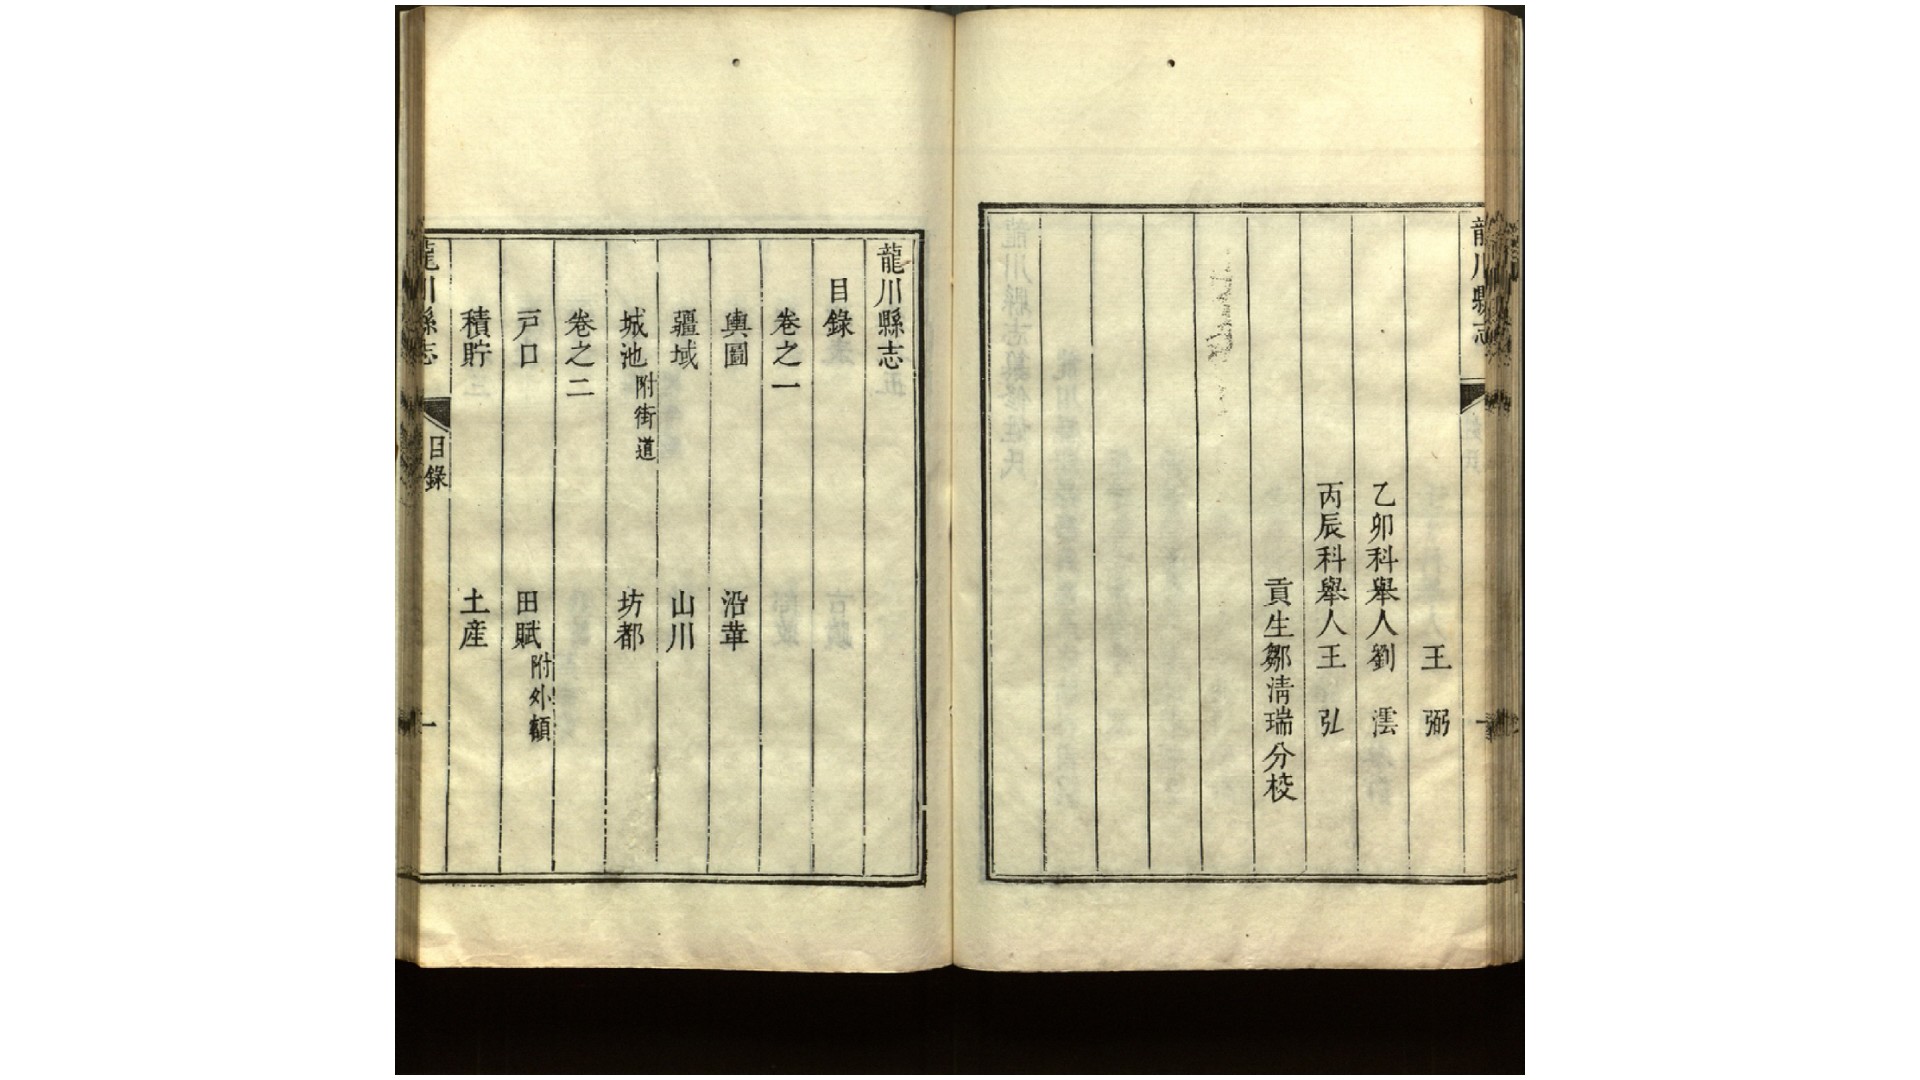 龍川縣志
一
王　弼
乙卯科舉人劉　澐
丙辰科舉人王　弘
貢生鄒淸瑞分校
龍川縣志
目錄
卷之一
輿圖　沿革
疆域　山川
城池附街道　坊都
卷之二
戸口　田賦附外額
積貯　土産
龍川縣志
目錄
一